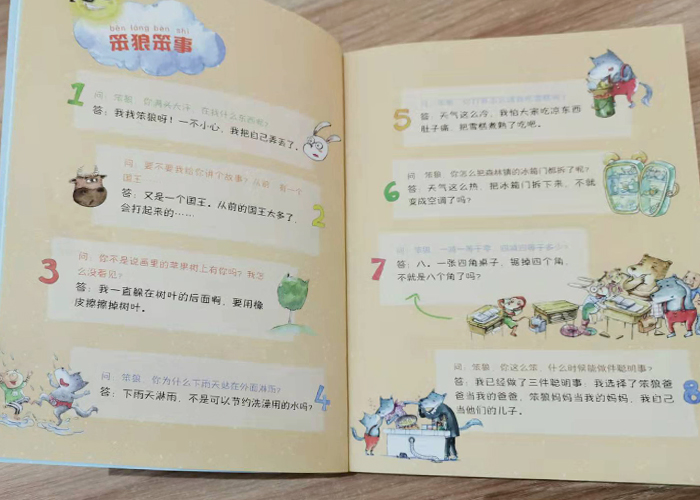 bèn láng bèn shì
笨狼笨事
1
问：笨狼，你满头大汗，在找什么东西呢？
答：我找笨狼呀！一不小心，我把自己弄丢了。
问：要不要我给你讲个故事？从前，有一个
国王……
答：又是一个国王。从前的国王太多了，
会打起来的……
2
3
问：你不是说画里的苹果树上有你吗？我怎
么没看见？
答：我一直躲在树叶的后面啊，要用橡
皮擦擦掉树叶。
问：笨狼，你为什么下雨天站在外面淋雨？
答：下雨天淋雨，不是可以节约洗澡用的水吗？
4
5
答：天气这么冷，我怕大家吃凉东西
肚子痛，把雪糕煮熟了吃吧。
6
问：笨狼，你怎么把森林镇的冰箱门都拆了呢？
答：天气这么热，把冰箱门拆下来，不就
变成空调了吗？
7
问：笨狼，
答：八。一张四角桌子，锯掉四个角，
不就是八个角了吗？
问：笨狼，你这么笨，什么时候能做件聪明事？
答：我已经做了三件聪明事，我选择了笨狼爸
爸当我的爸爸，笨狼妈妈当我的妈妈，我自己
当他们的儿子。
8